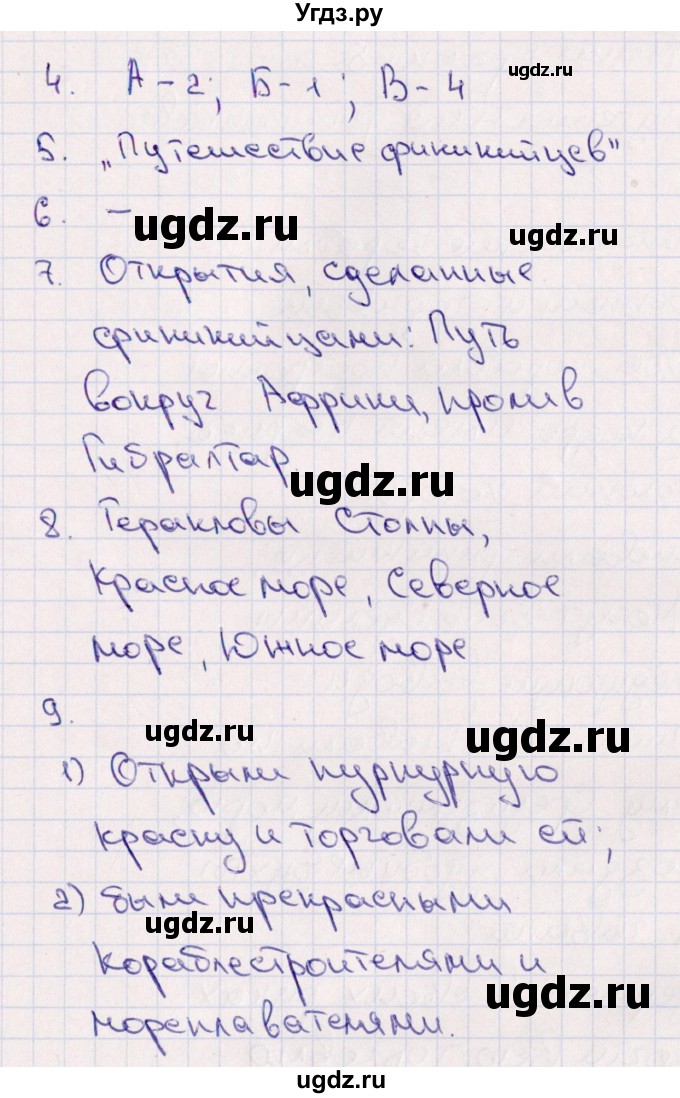 Угдз.ру
ugdz.ru
4. А-2; Б-1; В-4
5. „Путешествие финикийцев"
6. –
ugdz.ru
ugdz.ru
7. Открытия, сделанные
финикийцами: Путь
вокруг Африки, пролив
Гибралтар.
ugdz.ru
8. Геракловы Столпы,
Красное море, Северное
море, Южное море
9.
ugdz.ru
ugdz.ru
1) Открыли пурпурную
краску и торговали ей;
2) были прекрасными
ugdz.ru
кораблестроителями и
ugdz.ru
мореплавателями.
ugdz.ru